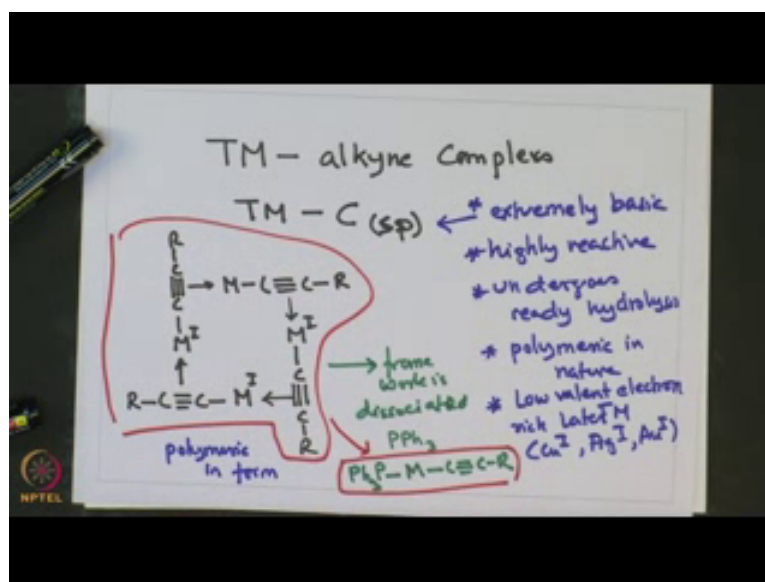 TM - alkyne Complexes
TM - C (sp)
* extremely basic
* highly reactive
* undergoes
ready hydrolysis
* polymeric in
nature
* Low valent electron
rich late TM
(Cu^I, Ag^I, Au^I)
R
C
C
M^I
→ M-C≡C-R
M^I
C
C
R
R-C≡C-M^I
→ frame
work is
dissociated
PPh3
Ph3P-M-C≡C-R
polymeric
in term
NPTEL